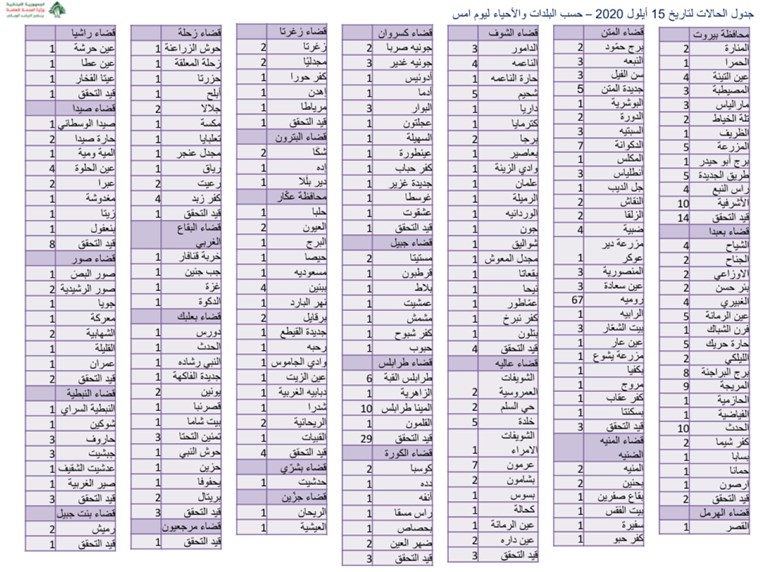 الجمهورية اللبنانية
وزارة الصحة العامة
جدول الحالات لتاريخ 15 أيلول 2020 – حسب البلدات والأحياء ليوم امس
محافظة بيروت
المنارة 2
الحمرا 1
عين التينة 4
المصيطبة 3
مارالياس 3
تلة الخياط 2
الظريف 1
المزرعة 5
برج أبو حيدر 1
طريق الجديدة 5
راس النبع 4
الأشرفية 10
قيد التحقق 14
قضاء بعبدا
الشياح 4
الجناح 2
الاوزاعي 2
بئر حسن 2
الغبيري 4
عين الرمانة 5
فرن الشباك 1
حارة حريك 5
الليلكي 2
برج البراجنة 8
المريجة 9
الحازمية 1
الفياضية 1
الحدث 10
كفر شيما 2
بسابا 1
حمانا 1
ارصون 1
قيد التحقق 2
قضاء الهرمل
القصر 1
قضاء المتن
برج حمّود 2
النبعه 3
سن الفيل 3
جديدة المتن 5
البوشرية 1
الدورة 2
السبتيه 3
الدكوانة 7
المكلس 1
أنطلياس 3
جل الديب 1
النقاش 2
الزلقا 2
ضبية 4
مزرعة دير
عوكر 1
المنصورية 3
عين سعادة 3
روميه 67
الرابيه 1
بيت الشعّار 3
عين عار 1
مزرعة يشوع 1
بكفيا 1
مروج 1
كفر عقاب 1
بسكنتا 1
قيد التحقق 3
قضاء المنيه
الضنيه
المنيه 2
بحنين 2
بقاع صفرين 1
بيت الفقس 1
سفيرة 1
كفر حبو 1
قضاء الشوف
الدامور 3
الناعمه 4
حارة الناعمه 1
شحيم 5
داريا 1
كترمايا 1
برجا 2
بعاصير 1
وادي الزينة 1
علمان 1
الرميلة 1
الوردانيه 1
جون 1
شواليق 1
مجدل المعوش 1
بقعاتا 1
نيحا 1
عمّاطور 1
كفر نبرخ 1
بتلون 1
قيد التحقق 4
قضاء عاليه
الشويفات
العمروسية 2
حي السلم 2
خلدة 5
الشويفات
الامراء 1
عرمون 7
بشامون 2
بسوس 1
كحالة 1
عين الرمانة 1
عين داره 2
قيد التحقق 3
قضاء كسروان
جونيه صربا 2
جونيه غدير 3
أدونيس 1
أدما 1
البوار 3
عجلتون 1
السهيلة 1
عينطورة 1
كفر حباب 1
جديدة غزير 1
غوسطا 1
عشقوت 1
قيد التحقق 1
قضاء جبيل
مستيتا 2
قرطبون 1
بلاط 1
عمشيت 1
مشمش 1
كفر شبوح 1
حبوب 1
قضاء طرابلس
طرابلس القبة 6
الزاهرية 1
المينا طرابلس 10
القلمون 1
قيد التحقق 29
قضاء الكورة
كوسبا 2
دده 1
أنفه 1
راس مسقا 1
بحصاص 1
ضهر العين 2
قيد التحقق 3
قضاء زغرتا
زغرتا 2
مجدليّا 2
كفر حورا 1
إهدن 1
مرياطا 1
قيد التحقق 1
قضاء البترون
شكّا 2
إده 1
دير بللا 1
محافظة عكّار
حلبا 1
العيون 2
البرج 1
حيصا 1
مسعوديه 1
ببنين 4
نهر البارد 1
برقايل 2
جديدة القيطع 1
رحبه 1
وادي الجاموس 1
عين الزيت 1
دبابيه الغربية 1
شدرا 1
الريحانية 2
القبيات 1
قيد التحقق 4
قضاء بشرّي
حدشيت 1
قضاء جزّين
الريحان 1
العيشية 1
قضاء زحلة
حوش الزراعنة 1
زحلة المعلقة 1
حزرتا 1
أبلح 1
جلالا 2
مكسة 1
تعلبايا 1
مجدل عنجر 1
رياق 1
رعيت 2
كفر زبد 4
قيد التحقق 1
قضاء البقاع
الغربي
خربة قنافار 1
جب جنين 1
غزة 1
الدكوة 1
قضاء بعلبك
دورس 1
الحدث 1
النبي رشاده 1
جديدة الفاكهة 1
يونين 2
قصرنبا 1
بيت شاما 1
تمنين التحتا 3
حوش النبي 1
حزين 1
يحفوفا 1
بريتال 2
قيد التحقق 3
قضاء مرجعيون
قيد التحقق 1
قضاء راشيا
عين حرشة 1
عين عطا 1
عيتا الفخار 1
قيد التحقق 1
قضاء صيدا
صيدا الوسطاني 1
حارة صيدا 2
المية ومية 1
عين الحلوة 4
عبرا 2
مغدوشة 1
زيتا 1
بنعفول 1
قيد التحقق 8
قضاء صور
صور البص 1
صور الرشيدية 2
جويا 1
معركة 1
الشهابية 2
القليلة 1
عمران 1
قيد التحقق 2
قضاء النبطية
النبطية السراي 1
شوكين 1
حاروف 3
جبشيت 3
عدشيت الشقيف 1
صير الغربية 1
قيد التحقق 3
قضاء بنت جبيل
رميش 2
قيد التحقق 1